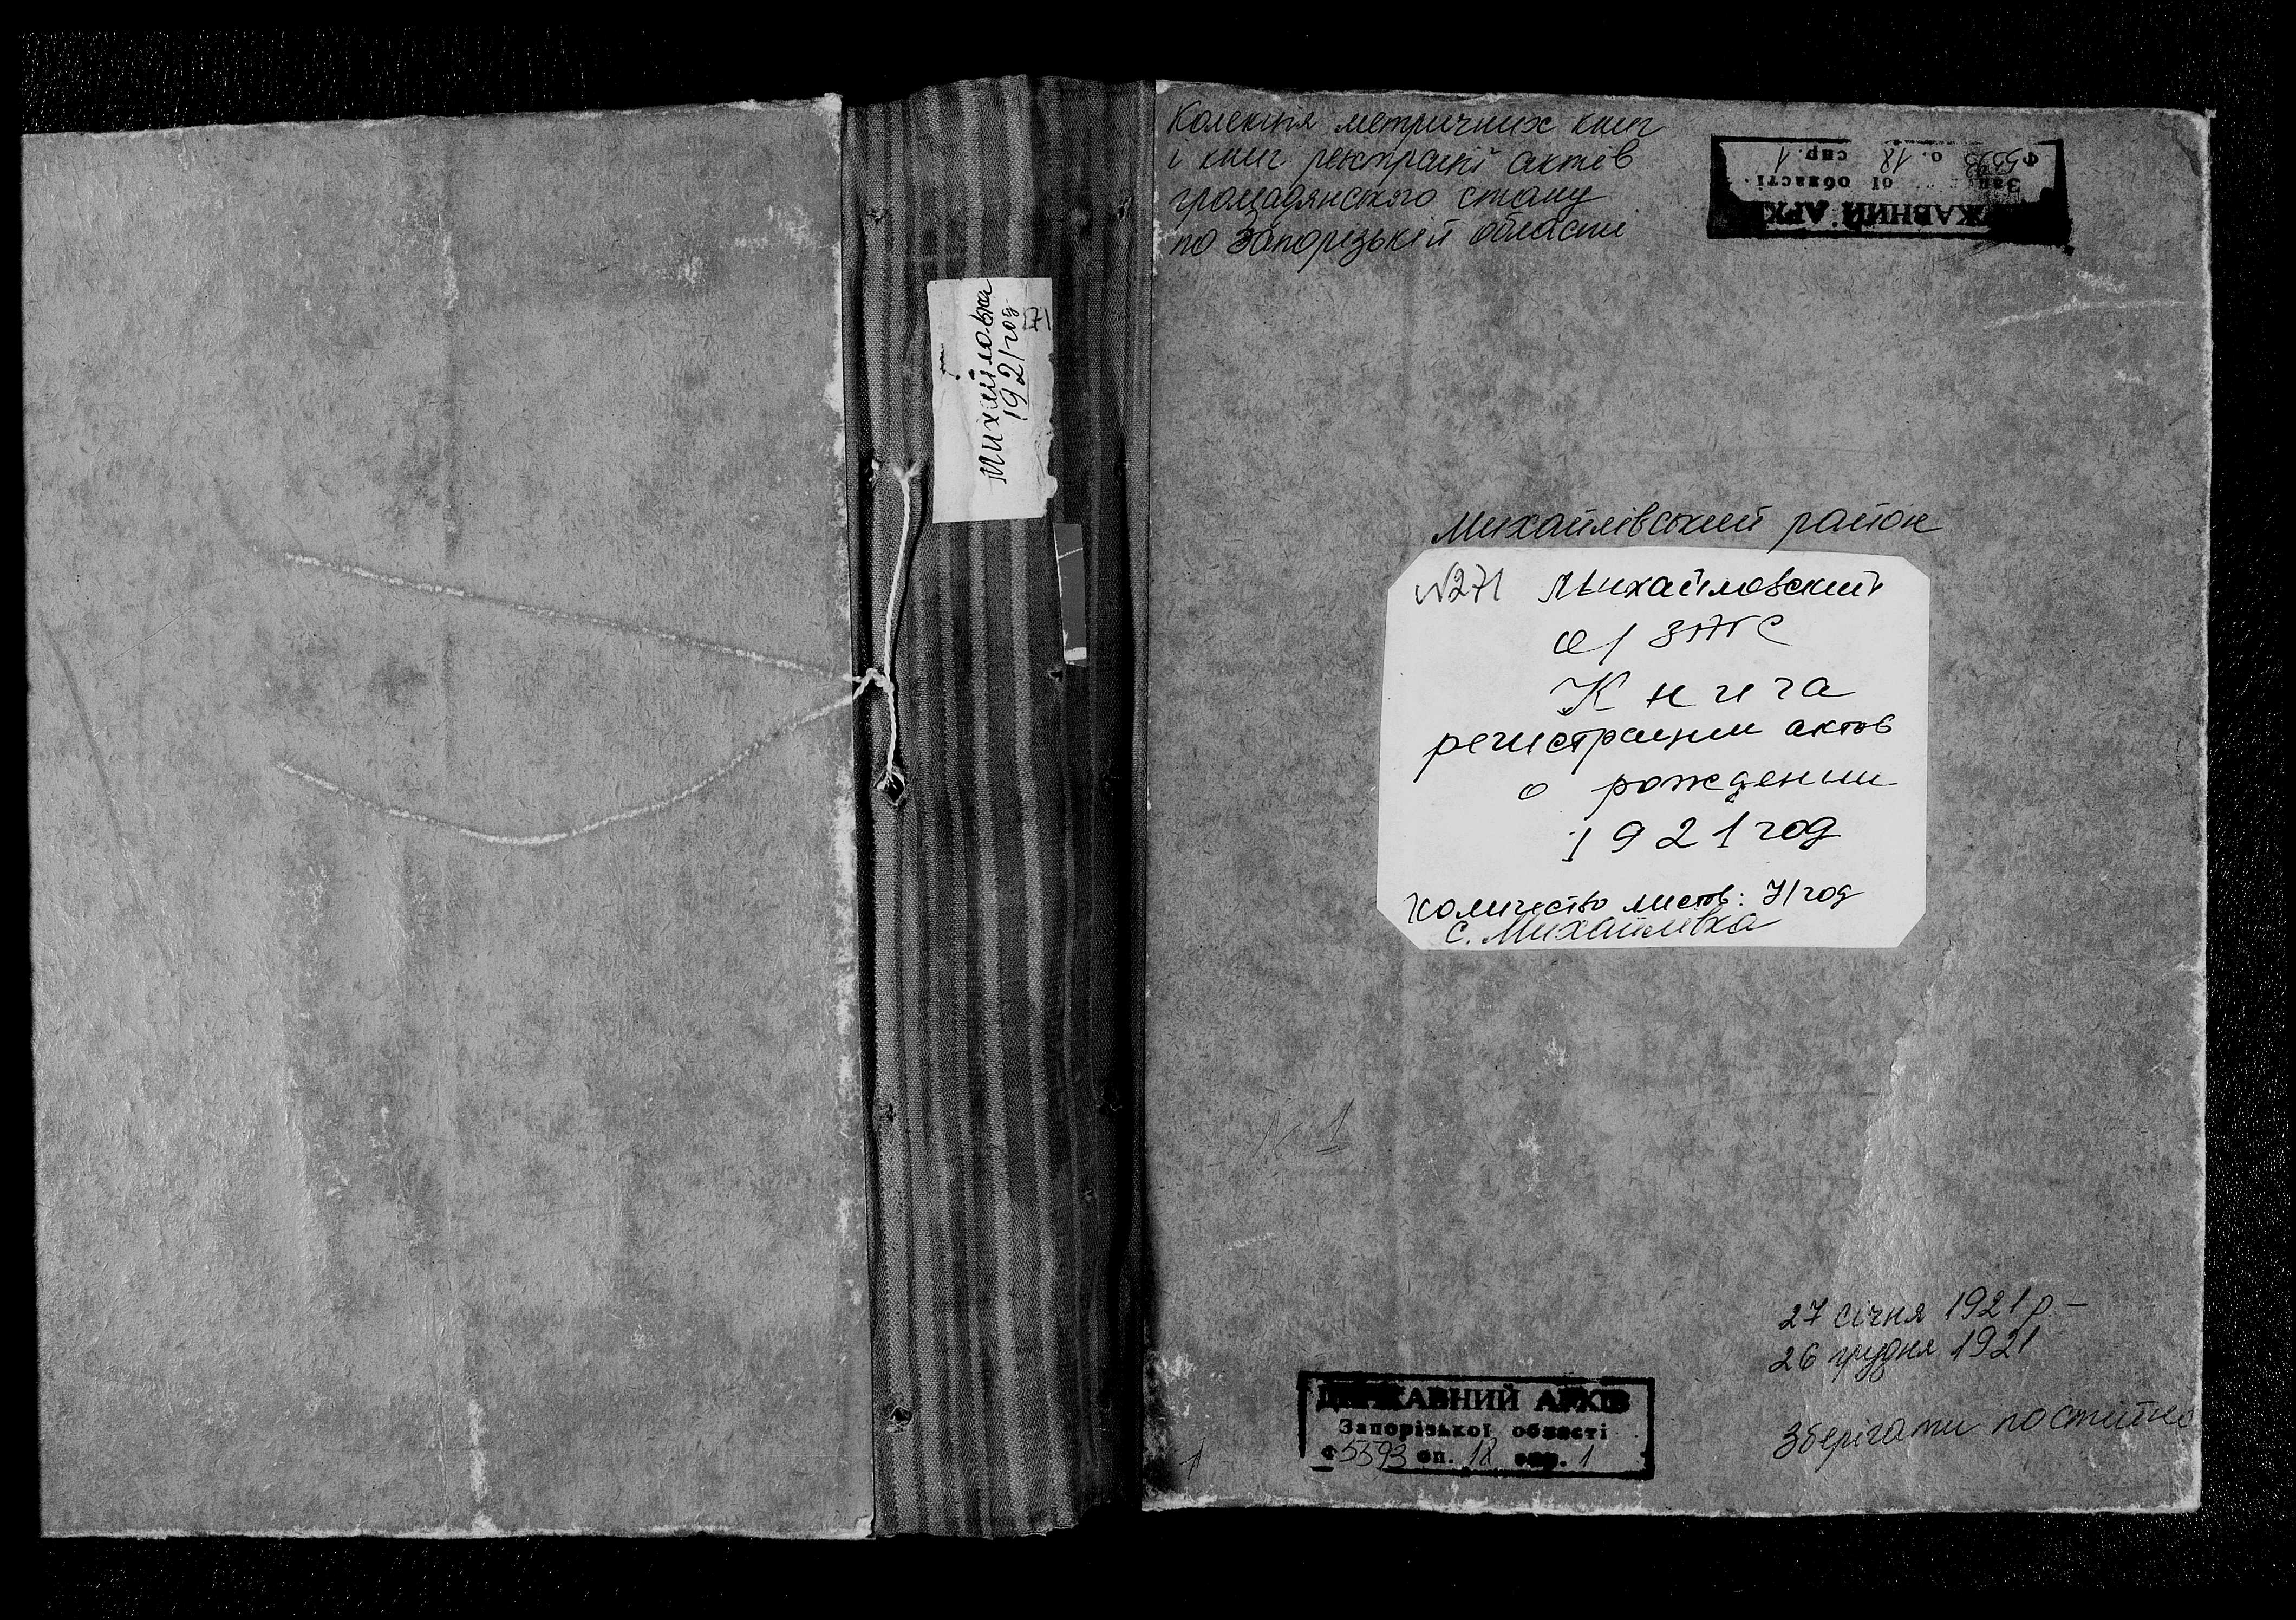 Колекція метричних книг
і книг реєстрації актів
громадянського стану
по Запорізькій області
ДЕРЖАВНИЙ АРХ
області
Ф 5593 о. 18 спр. 1
Михайловка
1921 год
271
Михайлівський район
№271 Михайловский
о/ЗАГС
Книга
регистрации актов
о рождении
1921 год
Количество листов: 71 год
с. Михайлівка
№ 1
27 січня 1921 р –
26 грудня 1921
Зберігати постійно
ДЕРЖАВНИЙ АРХІВ
Запорізької області
Ф 5593 оп. 18 спр. 1
1